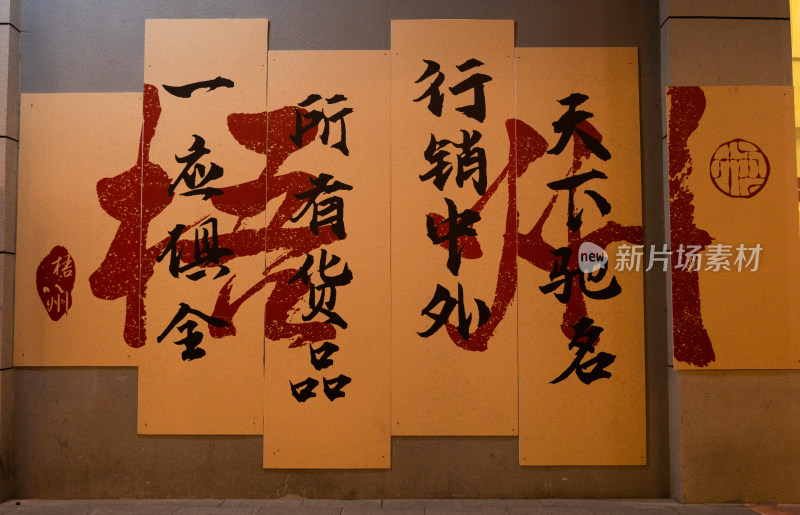 天下驰名
行销中外
所有货品
一应俱全
梧州
梧州
new 新片场素材